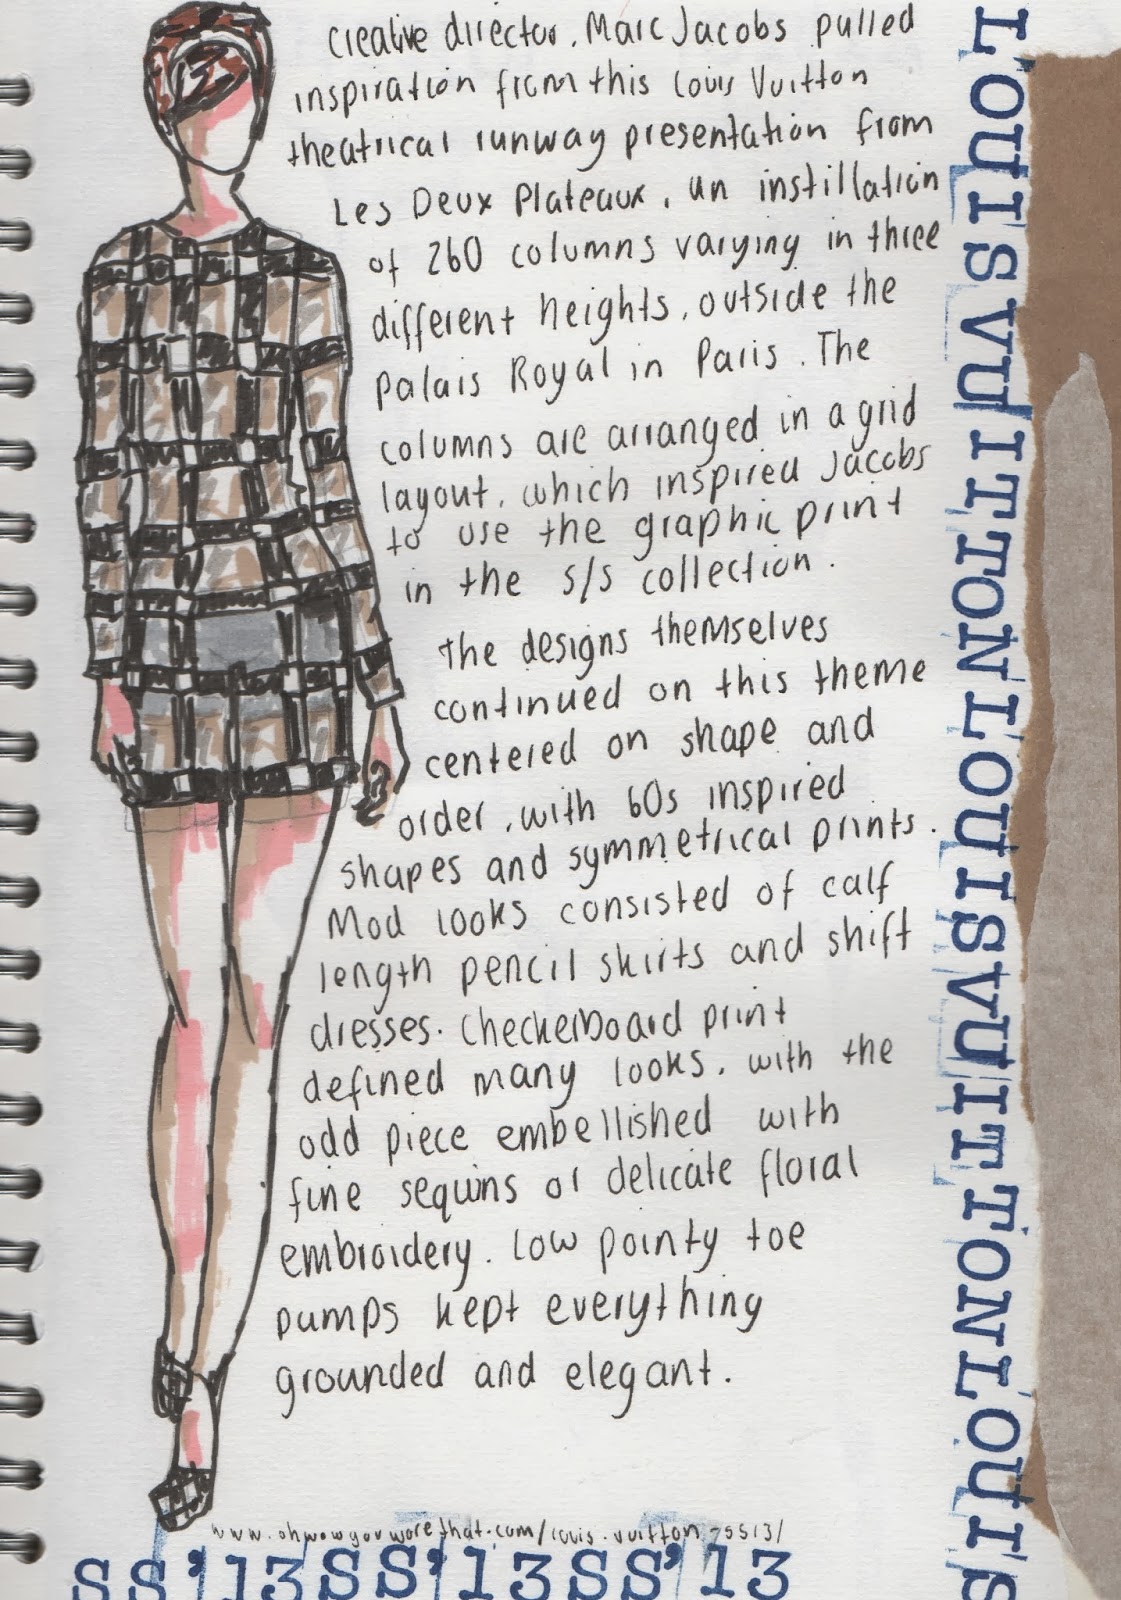 creative director, Marc Jacobs pulled
inspiration from this Louis Vuitton
theatrical runway presentation from
Les Deux Plateaux, un instillation
of 260 columns varying in three
different heights, outside the
Palais Royal in Paris. The
columns are arranged in a grid
layout, which inspired Jacobs
to use the graphic print
in the s/s collection.
The designs themselves
continued on this theme
centered on shape and
order, with 60s inspired
shapes and symmetrical prints.
Mod looks consisted of calf
length pencil skirts and shift
dresses. Checkerboard print
defined many looks, with the
odd piece embellished with
fine sequins or delicate floral
embroidery. Low pointy toe
pumps kept everything
grounded and elegant.
www.ohwowyouworethat.com/louis-vuitton-ss13/
SS'13SS'13SS'13
LOUISVUITTONLOUISVUITTONLOUIS